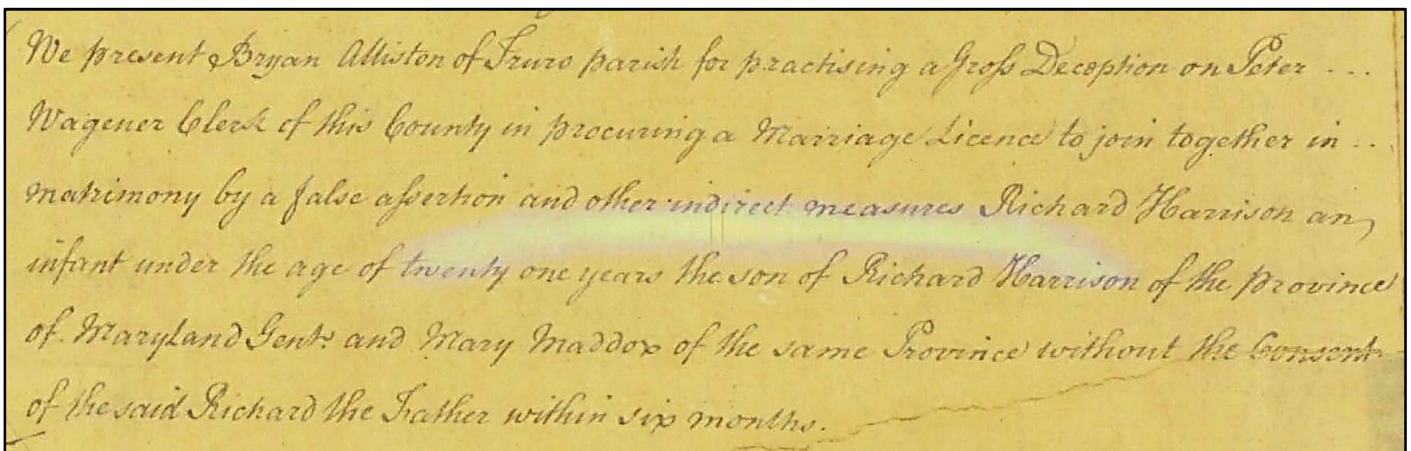 We present Bryan Alliston of Truro parish for practising a Gross Deception on Peter ...
Wagener Clerk of this County in procuring a Marriage Licence to join together in ..
matrimony by a false assertion and other indirect measures Richard Harrison an
infant under the age of twenty one years the son of Richard Harrison of the province
of Maryland Gent. and Mary Maddox of the same Province without the Consent
of the said Richard the Father within six months.